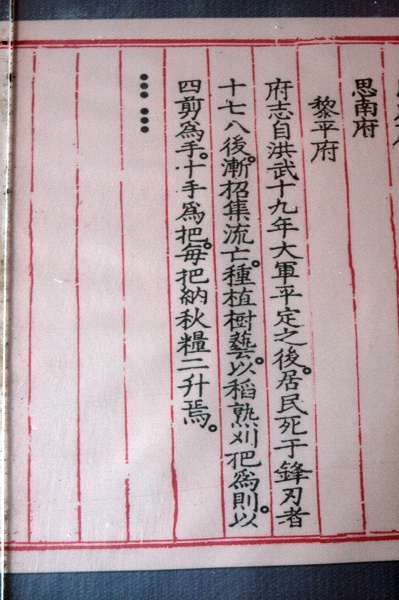 思南府
黎平府
府志自洪武十九年大軍平定之後。居民死于鋒刃者
十七八後。漸招集流亡。種植樹藝。以稻熟刈把為則。以
四剪為手。十手為把。每把納秋糧二升焉。
……